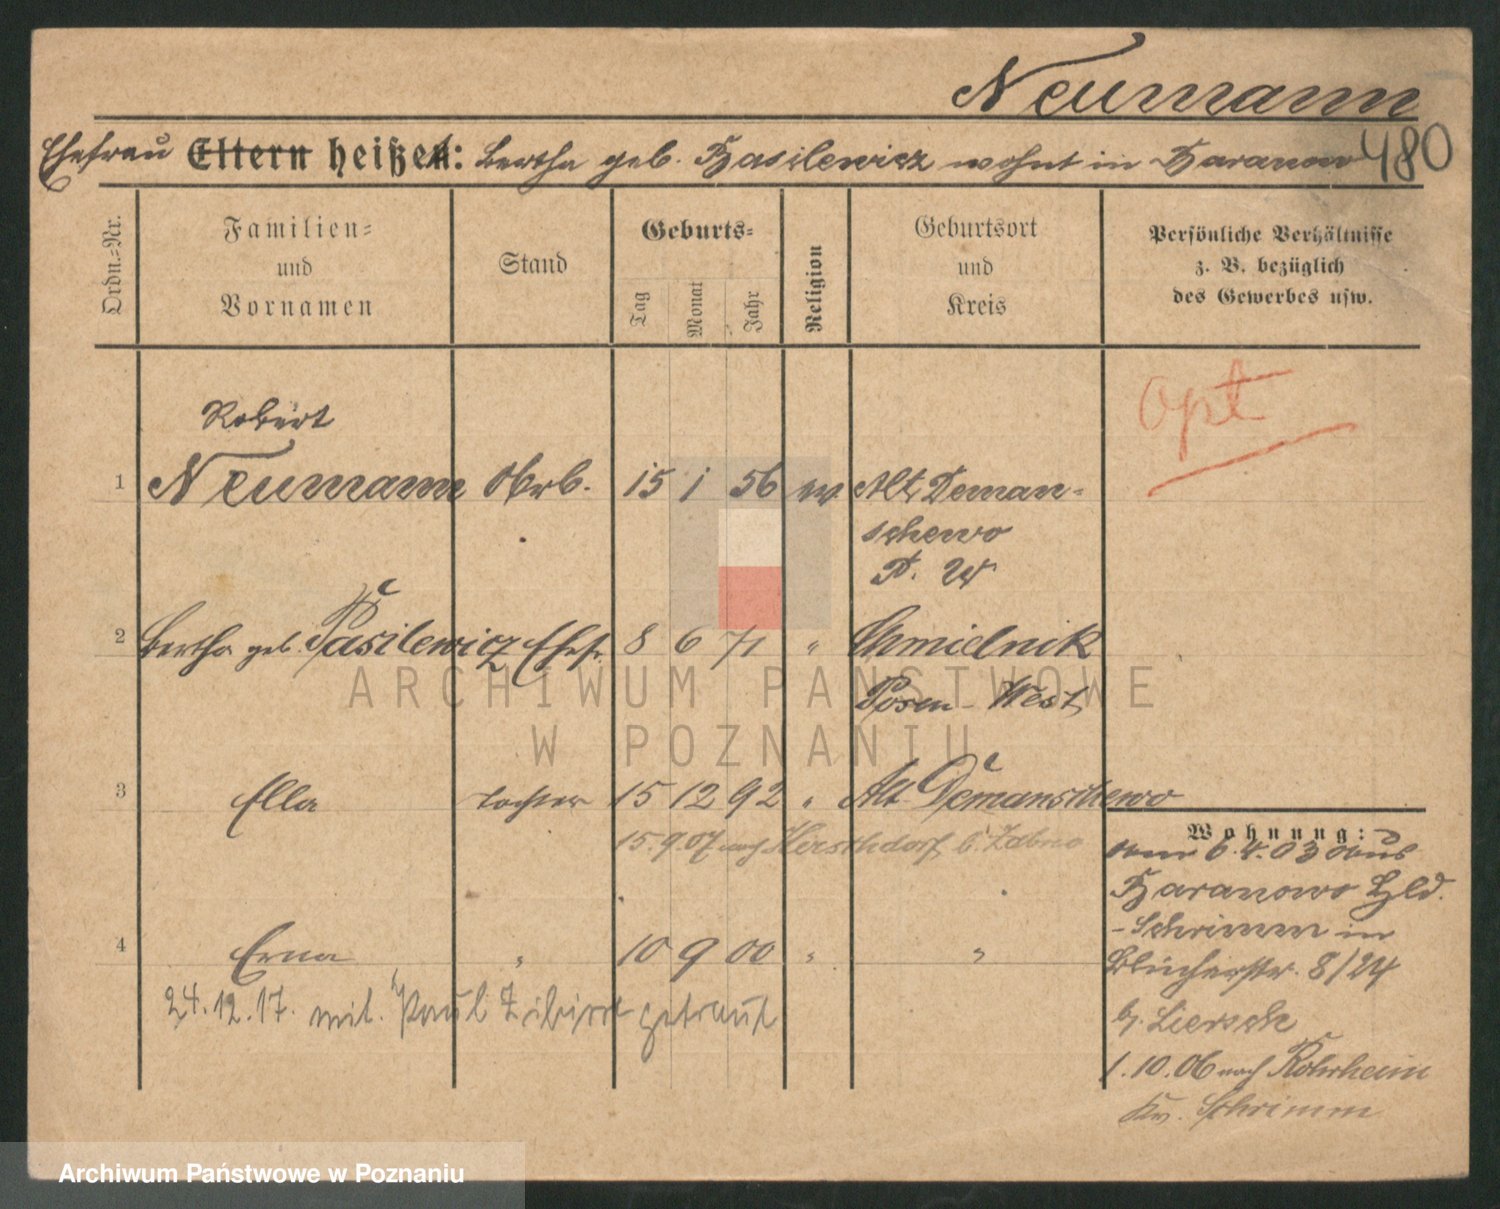 Neumann
480
Ehefrau Eltern heißen: Bertha geb. Basilewicz wohnt in Baranow
Ordn.-Nr.
Familien=
und
Vornamen
Stand
Geburts=
Tag
Monat
Jahr
Religion
Geburtsort
und
Kreis
Persönliche Verhältnisse
z. B. bezüglich
des Gewerbes usw.
Opt
Robert
1 Neumann Arb. 15 1 56 ev. Alt Deman-
schewo
P. W
2 Bertha geb. Pasilewicz Ehefr. 8 6 71 " Chmielnik
Posen-West
3 Ella Tochter 15 12 92 " Alt Demanschewo
15.9.07 nach Hirschdorf b. Zabno
4 Erna " 10 9 00 " "
24.12.17. mit Paul getraut
Wohnung:
vom 6.4.03 aus
Baranowo Hld.
-Schrimm in
Blücherstr. 8/24
b. Liersch
1.10.06 nach Rohrheim
Kr. Schrimm
ARCHIWUM PAŃSTWOWE
W POZNANIU
Archiwum Państwowe w Poznaniu